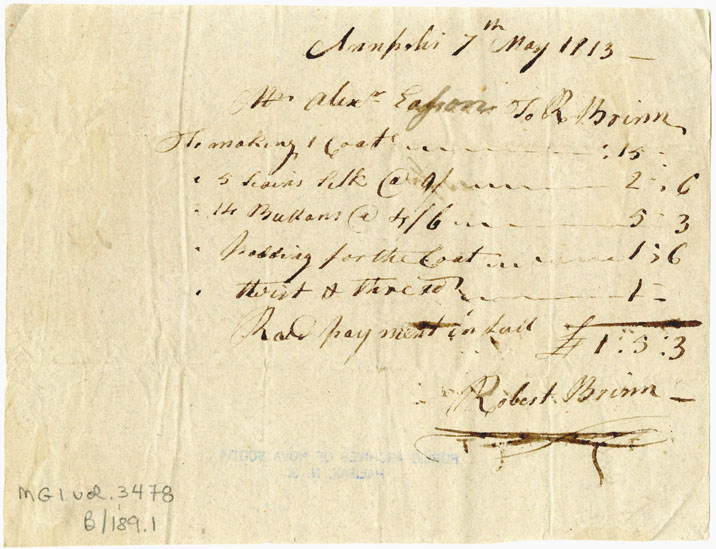 Annpolis 7th May 1813 —
Mr Alexr Easson To R Brinn
To making 1 Coat :15 –
" 5 Scains Silk @ 2 : 6
" 14 Buttons @ 4/6 5 : 3
" Padding for the Coat 1 : 6
" twist & thread 1 –
Racd payment in full £1 : 5 : 3
Robert Brinn —
PUBLIC ARCHIVES OF NOVA SCOTIA
HALIFAX, N. S.
MG1 vol. 3478
B/189.1